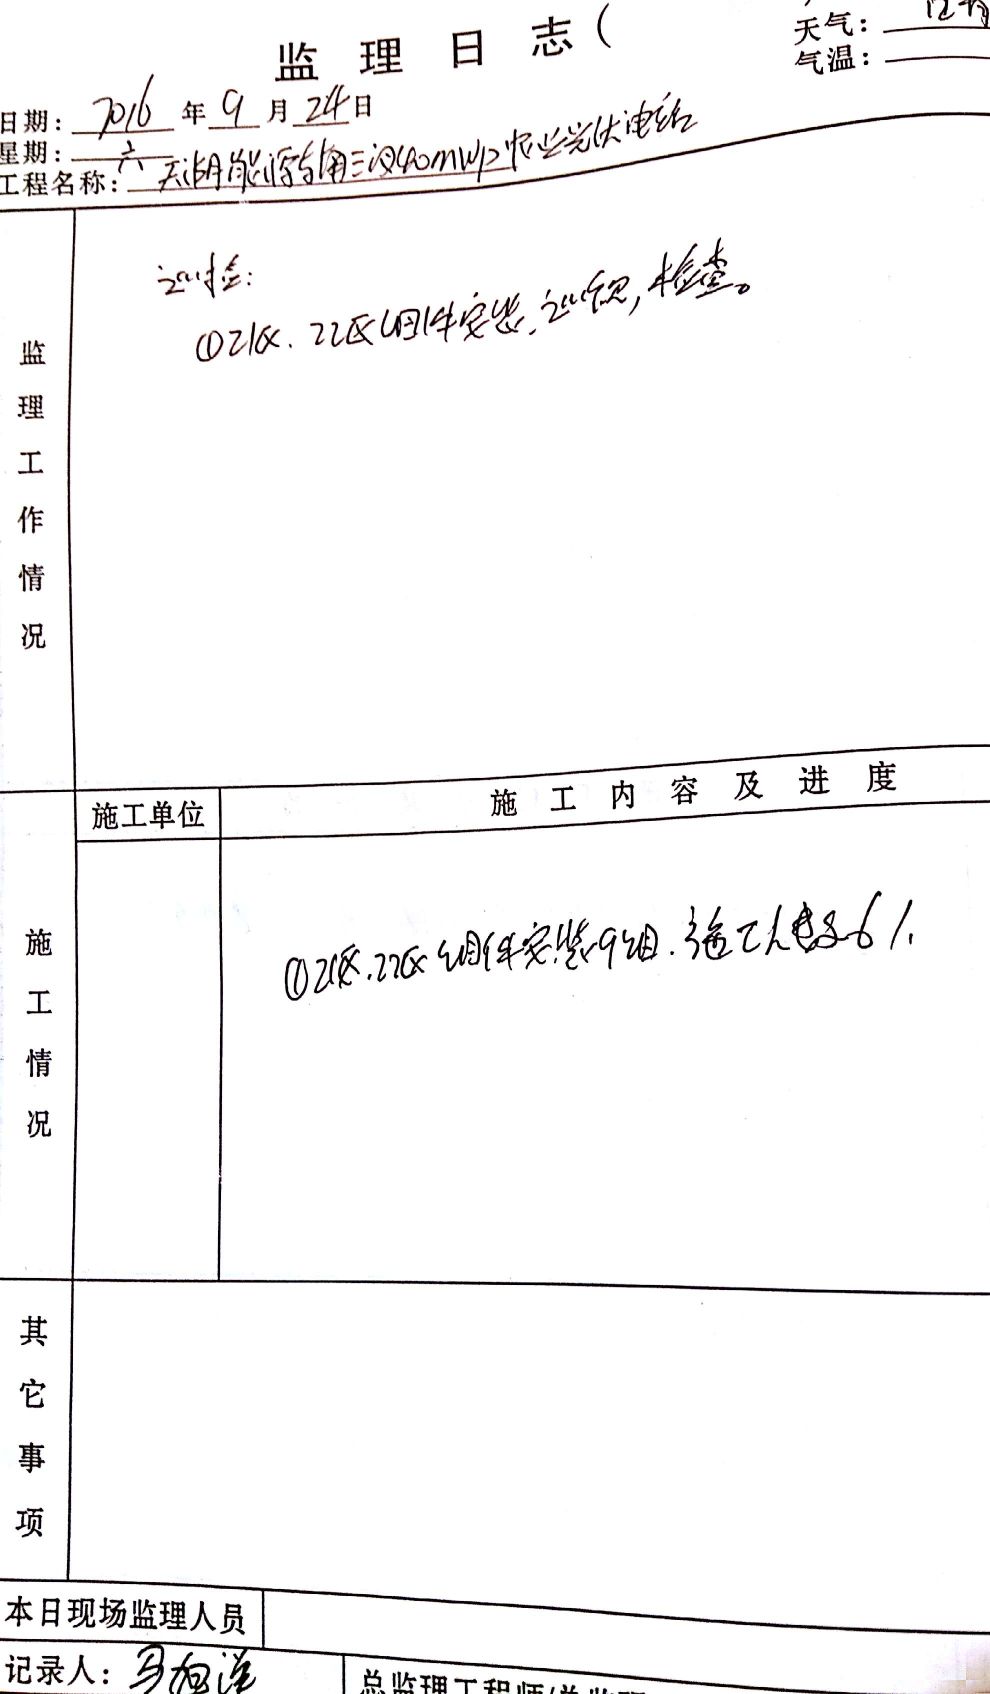 监理日志(
天气:
气温:
日期: 2016 年 9 月 24 日
星期: 六
工程名称: 天湖能源马甫三汊40mwp农业光伏电站
监理工作情况
巡检:
①21区、22区组件安装、巡视,检查。
施工单位
施工内容及进度
施工情况
①21区、22区组件安装9组、施工人数6人
其它事项
本日现场监理人员
记录人:
总监理工程师/总监理